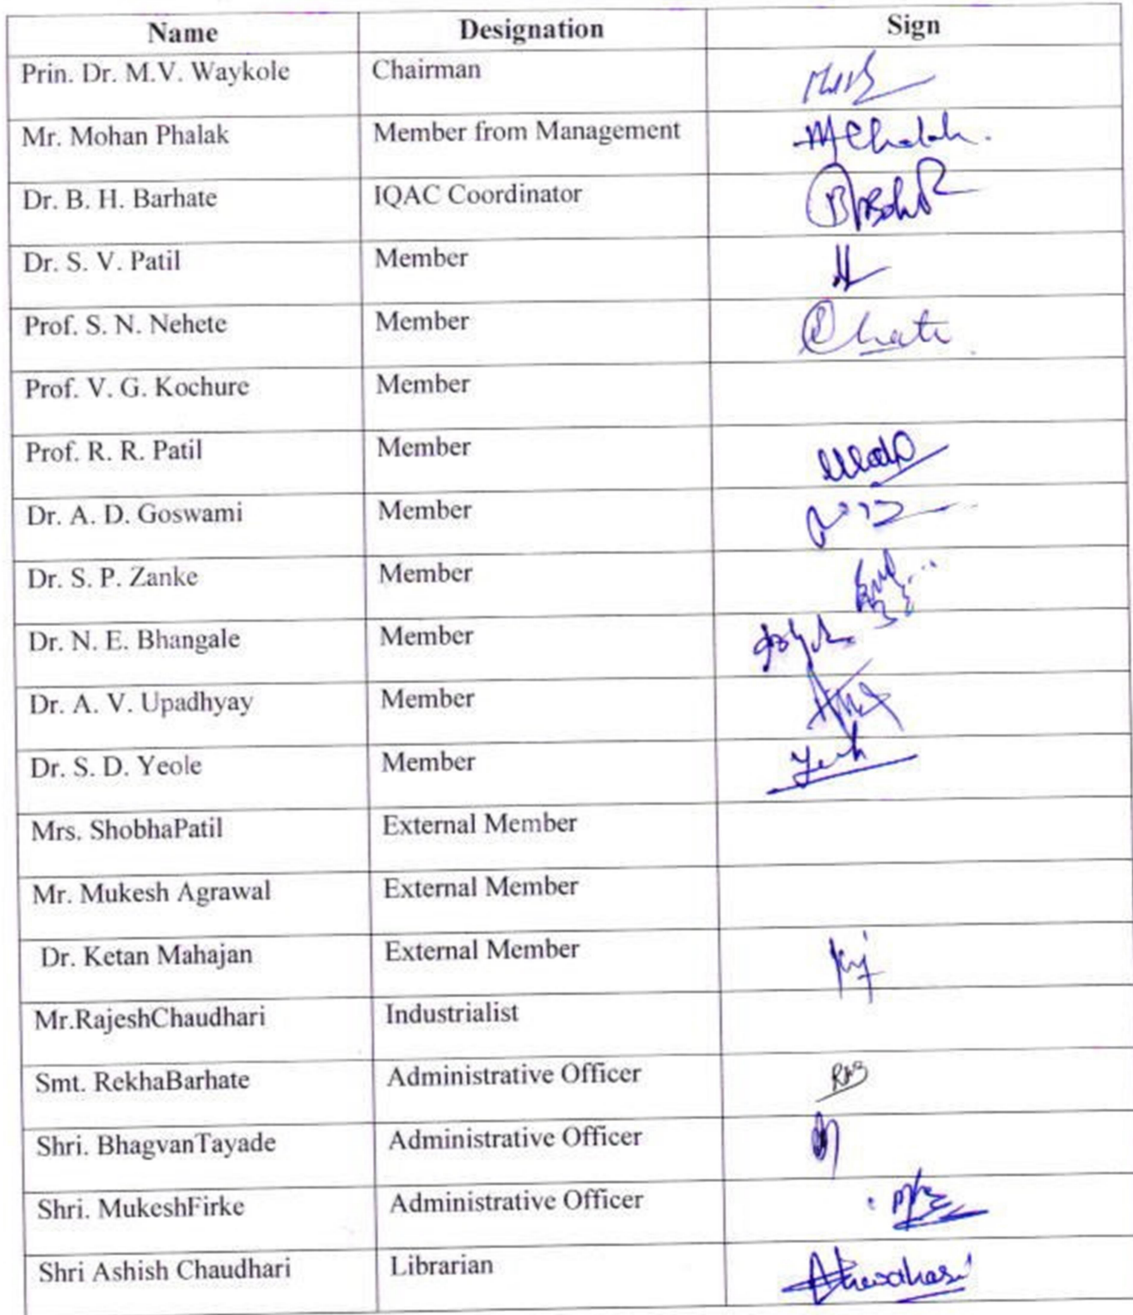 Name Designation Sign
Prin. Dr. M.V. Waykole Chairman
Mr. Mohan Phalak Member from Management
Dr. B. H. Barhate IQAC Coordinator
Dr. S. V. Patil Member
Prof. S. N. Nehete Member
Prof. V. G. Kochure Member
Prof. R. R. Patil Member
Dr. A. D. Goswami Member
Dr. S. P. Zanke Member
Dr. N. E. Bhangale Member
Dr. A. V. Upadhyay Member
Dr. S. D. Yeole Member
Mrs. ShobhaPatil External Member
Mr. Mukesh Agrawal External Member
Dr. Ketan Mahajan External Member
Mr.RajeshChaudhari Industrialist
Smt. RekhaBarhate Administrative Officer
Shri. BhagvanTayade Administrative Officer
Shri. MukeshFirke Administrative Officer
Shri Ashish Chaudhari Librarian